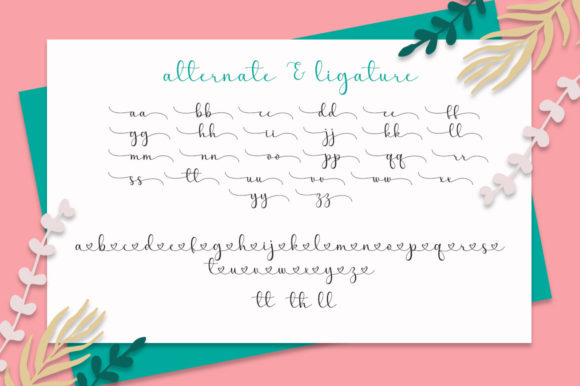 alternate & ligature
aa bb cc dd ee ff
gg hh ii jj kk ll
mm nn oo pp qq rr
ss tt uu vv ww xx
yy zz
a♡b♡c♡d♡e♡f♡g♡h♡i♡j♡k♡l♡m♡n♡o♡p♡q♡r♡s♡
t♡u♡v♡w♡x♡y♡z♡
tt th ll